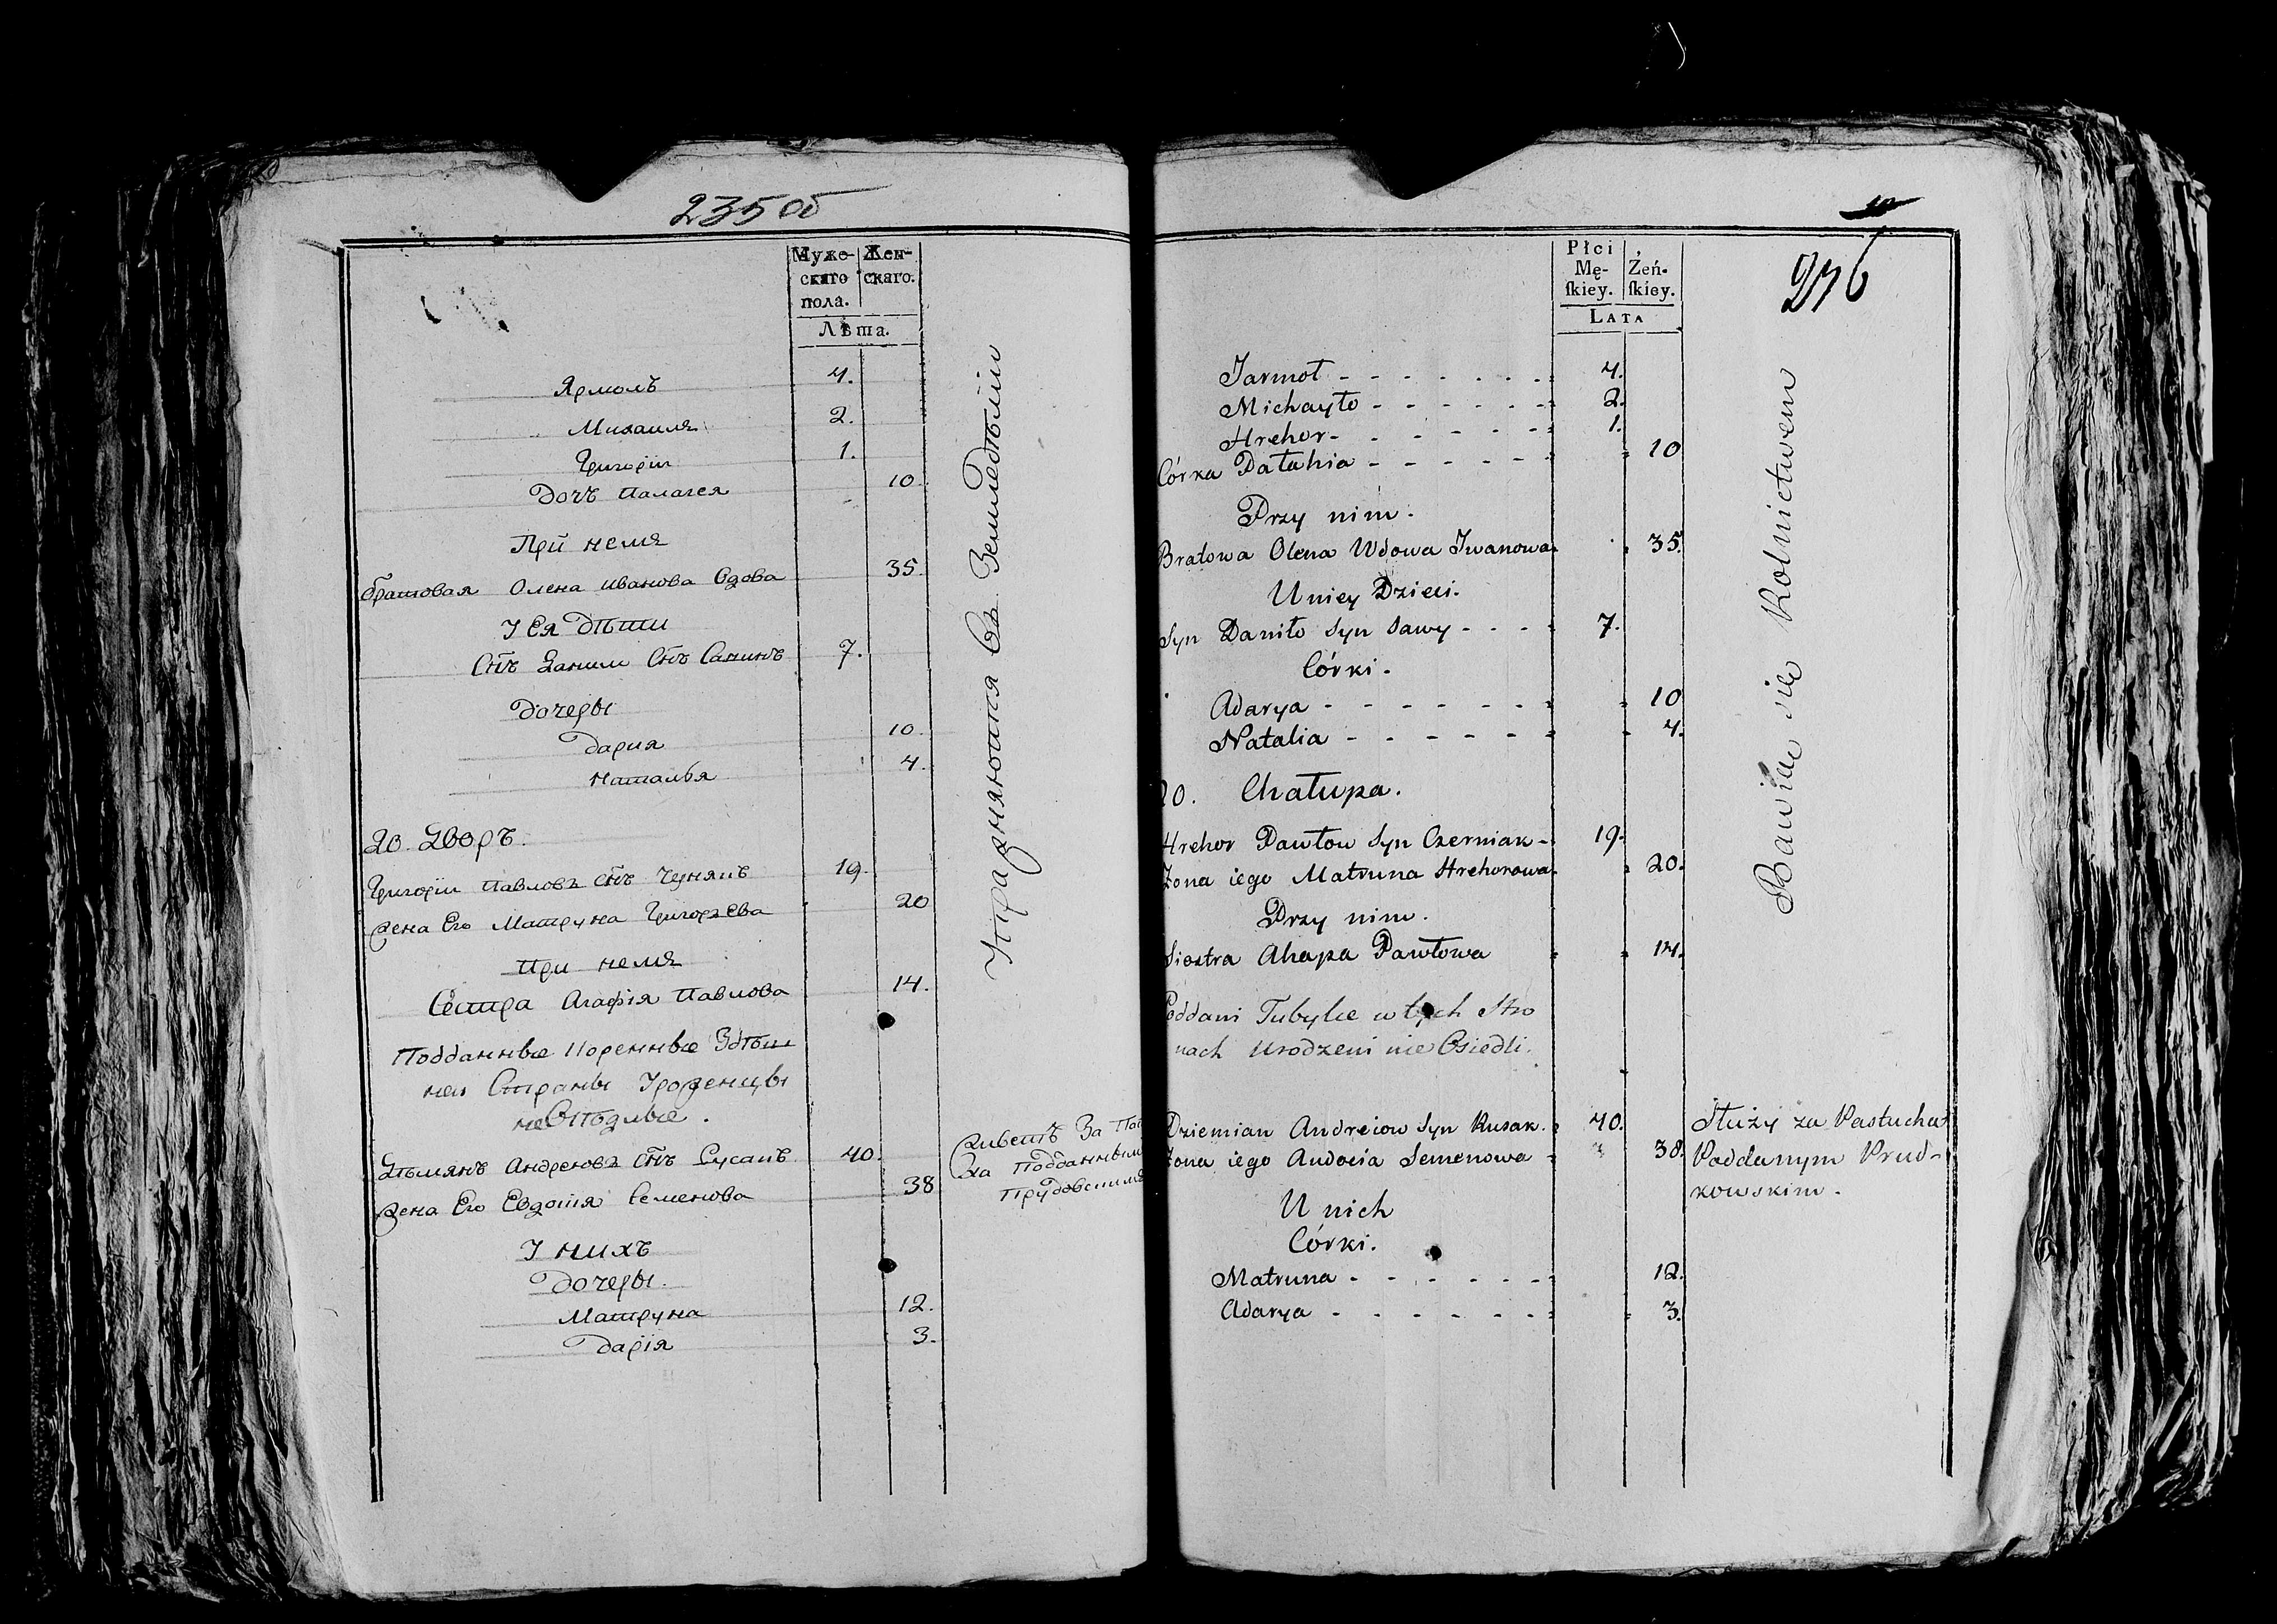 235 об
Муже-
скаго
пола.
Жен-
скаго.
Лѣта.
Ярмолъ 4.
Михаилъ 2.
Григорій 1.
Дочъ Палагея 10
При немъ
братовая Олена Иванова Вдова 35.
У Ея дѣти
Снъ Данили Снъ Савинъ 7.
Дочеры
Дария 10.
Наталья 4.
20. Дворъ.
Григорій Павловъ Снъ 19.
жена Его Матруна Григорева 20
При немъ
Сестра Агафія Павлова 14.
Подданные Коренные Здѣш
ней Страны Уроженцы
неОсѣдлые.
Дѣмянъ Андреювъ Снъ Русакъ 40.
жена Его Евдокія Семенова 38
У нихъ
Дочеры.
Матруна 12.
Дарія 3.
Упражняются Въ Земледѣліи
живетъ За Пас
ха Подданным
Прудовским
276
Płci
Mę-
ſkiey.
Żeń-
ſkiey.
LATA
Jarmoł - - - - - - - 4.
Michayło - - - - - - 2.
Hrehor - - - - - - 1.
Córka Pałahia - - - - - 10
Przy nim.
Bratowa Olena Wdowa Jwanowa 35.
U niey Dzieci.
Syn Daniło Syn Sawy - - - - 7.
Córki.
Adarya - - - - - - - 10
Natalia - - - - - - 4.
20. Chałupa.
Hrehor Pawłow Syn Czerniak - 19.
Żona iego Matruna Hrehorowa 20.
Przy nim.
Siostra Ahapa Pawłowa 14.
Poddani Tubylce w tych Stro
nach Urodzeni nie Osiedli.
Dziemian Andreiow Syn Rusak. 40.
Żona iego Audocia Semenowa 38.
U nich
Córki.
Matruna - - - - - - 12.
Adarya - - - - - - 3.
Bawiąc się Rolnictwem
Służy za Pastucha
Poddanym Prud-
kowskim.